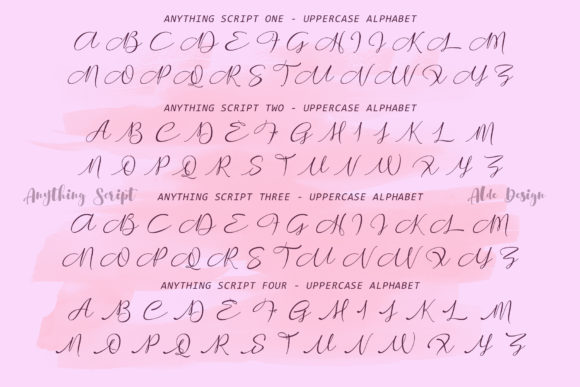 ANYTHING SCRIPT ONE - UPPERCASE ALPHABET
A B C D E F G H I J K L M
N O P Q R S T U V W X Y Z
ANYTHING SCRIPT TWO - UPPERCASE ALPHABET
A B C D E F G H I J K L M
N O P Q R S T U V W X Y Z
Anything Script
ANYTHING SCRIPT THREE - UPPERCASE ALPHABET
Alde Design
A B C D E F G H I J K L M
N O P Q R S T U V W X Y Z
ANYTHING SCRIPT FOUR - UPPERCASE ALPHABET
A B C D E F G H I J K L M
N O P Q R S T U V W X Y Z